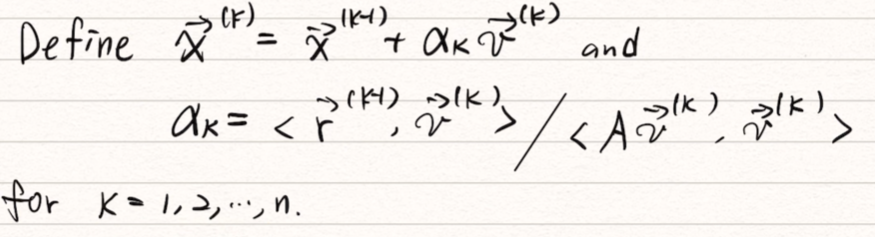 Define $\vec{x}^{(k)} = \vec{x}^{(k-1)} + \alpha_k \vec{v}^{(k)}$ and
$\alpha_k = < \vec{r}^{(k-1)}, \vec{v}^{(k)} > / < A\vec{v}^{(k)}, \vec{v}^{(k)} >$
for $k = 1, 2, \cdots, n.$